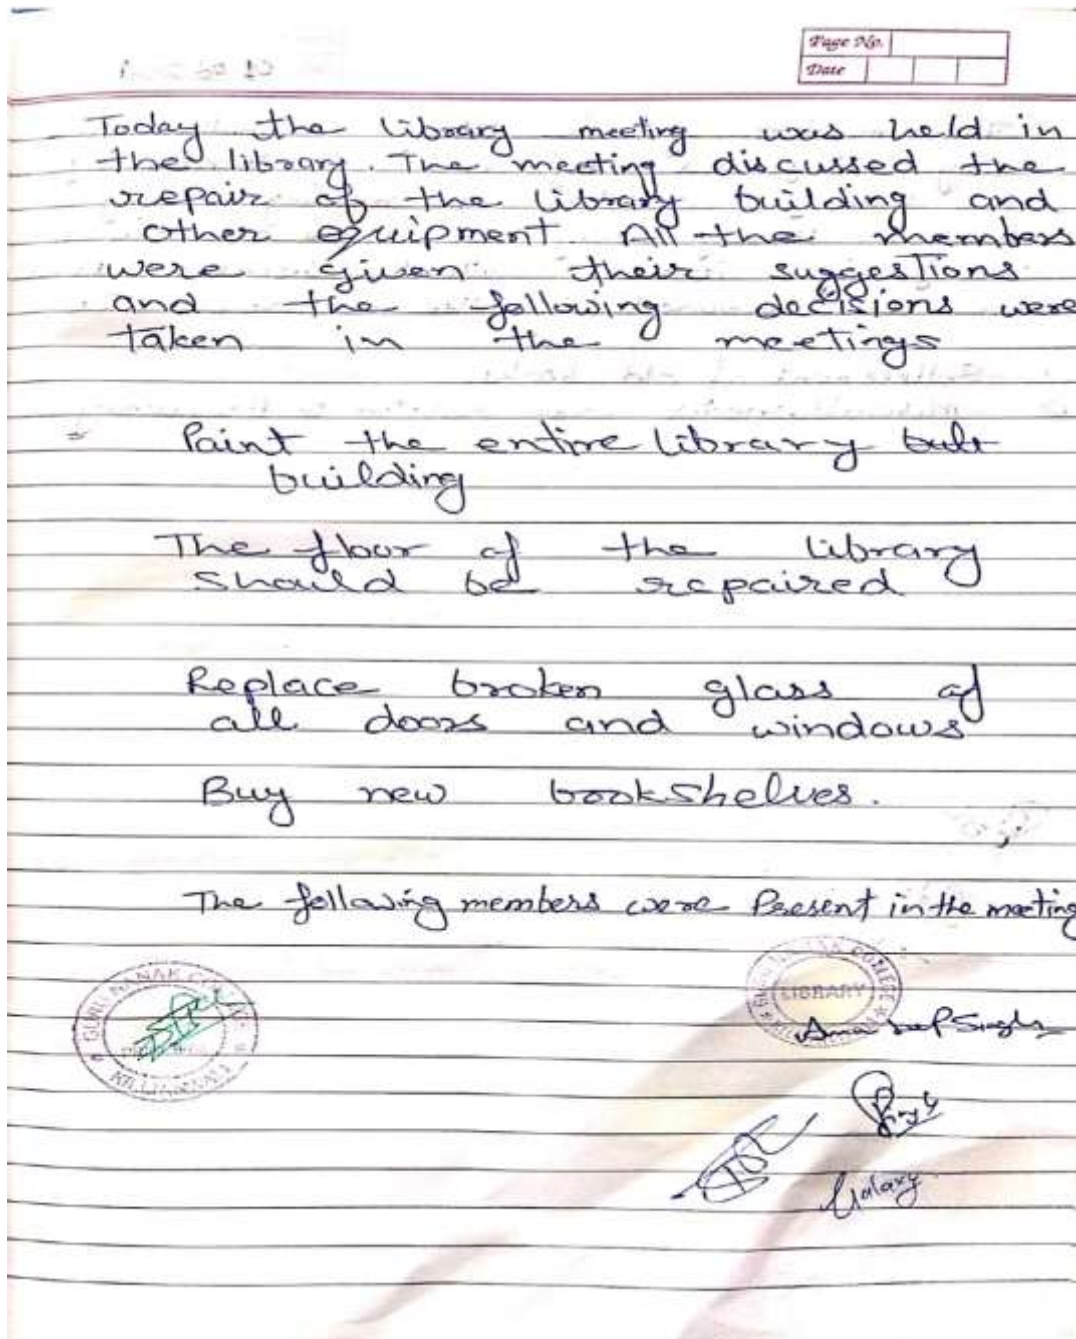 Page No.
Date
Today the library meeting was held in
the library. The meeting discussed the
repair of the library building and
other equipment. All the members
were given their suggestions
and the following decisions were
taken in the meetings
Paint the entire library
building
The floor of the library
should be repaired
Replace broken glass of
all doors and windows
Buy new bookshelves.
The following members were Present in the meeting
GURU NANAK COLLEGE
KILLIANWALI
GURU NANAK COLLEGE
LIBRARY
Singh
Galaxy